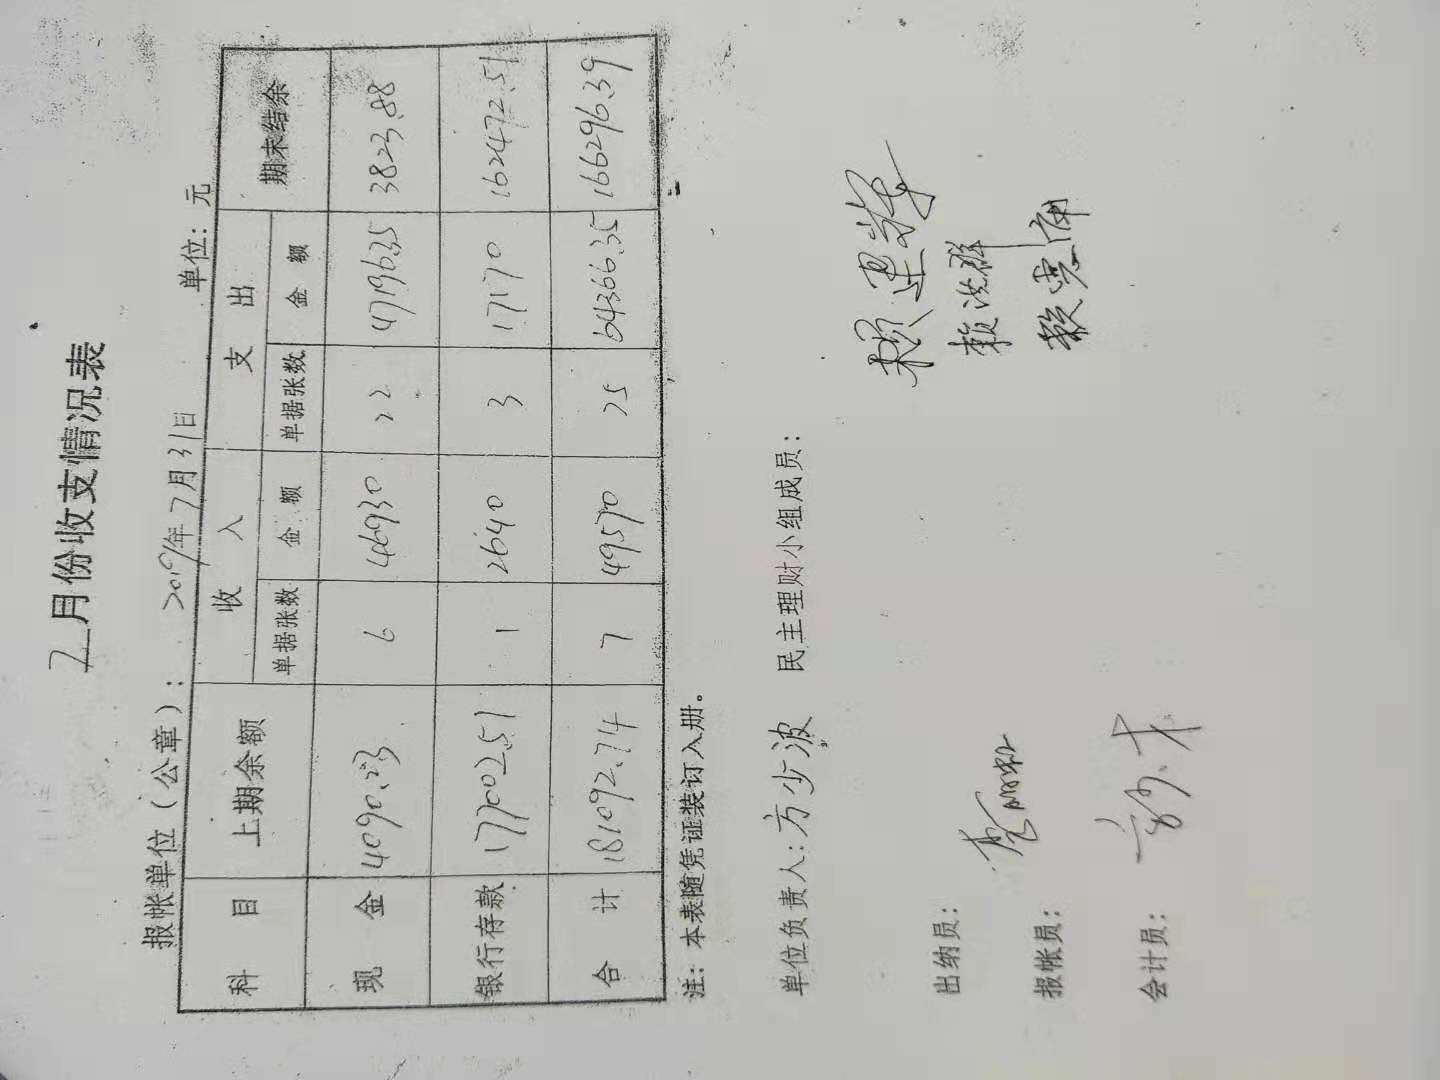 7月份收支情况表
报帐单位（公章）： 2019年7月31日 单位：元
科 目 上期余额 收 入 支 出 期末结余
单据张数 金 额 单据张数 金 额
现 金 4090.23 6 46930 22 47196.35 3823.88
银行存款 177002.51 1 2640 3 17170 162472.51
合 计 181092.74 7 49570 25 64366.35 166296.39
注：本表随凭证装订入册。
单位负责人：方少波 民主理财小组成员：
赖运
出纳员： 赖洪群
报帐员： 赖
会计员：